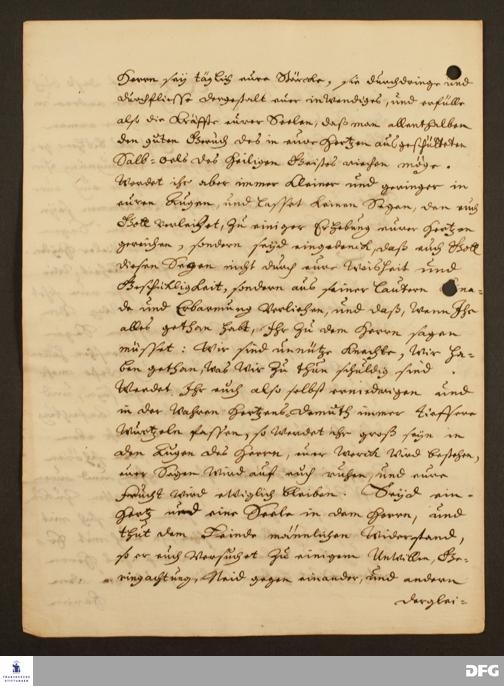 Herrn seÿ täglich eure Stärcke, sie durchdringe und
durchfliesse dergestalt euer inwendiges, und erfülle
alß die Kräffte eürer Seelen, daß man allenthalben
den guten Geruch des in eure Hertzen ausgeschütteten
Salb-Oels des Heiligen Geistes riechen möge.
Werdet ihr aber immer kleiner und geringer in
euren Augen, und lasset keinen Segen, den euch
Gott verleihet, zu einiger Erhebung eurer Hertzen
gereichen, sondern seÿd eingedenck, daß euch Gott
diesen Segen nicht durch eure Weisheit und
Geschickligkeit, sondern aus seiner lautern Gna-
de und Erbarmung verliehen, und daß, wenn Ihr
alles gethan habt, Ihr zu dem Herrn sagen
müsset: Wir sind unnütze Knechte, Wir ha-
ben gethan, was Wir zu thun schuldig sind.
Werdet Ihr euch also selbst erniedrigen und
in der wahren Hertzens-Demuth immer tieffere
Wurtzeln fassen, so werdet ihr groß seÿn in
den Augen des Herrn, euer Werck wird bestehen,
euer Segen wird auf euch ruhen, und eure
Frucht wird ewiglich bleiben. Seÿd ein
Hertz und eine Seele in dem Herrn, und
thut dem Feinde männlichen Widerstand,
so er euch versuchet zu einigem Unwillen, Ge-
ringachtung, Neid gegen einander, und andern
derglei-
FRANCKESCHE
STIFTUNGEN
DFG